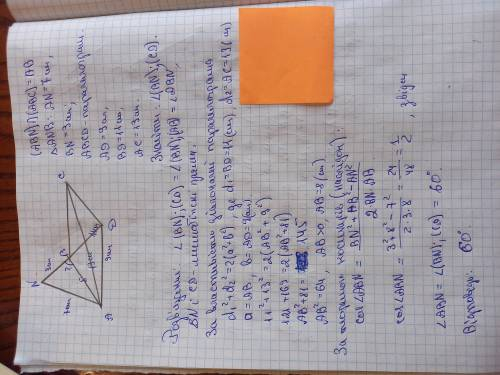 (ABN)∩(ABC)=AB
△ANB: AN=7 см,
BN=3 см;
ABCD - паралелограм.
AD=9 см,
BD=11 см,
AC=13 см
Знайти: ∠(BN);(CD).
N
C
B
A
D
3см
7см
13
11см
9см
Розв'язання: ∠(BN);(CD) = ∠(BN);(AB) = ∠ABN,
BN і CD - мимобіжні прямі.
За властивістю діагоналей паралелограма
d₁²+d₂²=2(a²+b²), де d₁=BD=11(см), d₂=AC=13(см)
a=AB, b=AD=9(см)
11²+13²=2(AB²+9²)
121+169=2(AB²+81)
AB²+81=145
AB²=64, AB>0, AB=8(см)
За теоремою косинусів (наслідок):
cos∠ABN = BN²+AB²-AN² / 2·BN·AB
cos∠ABN = 3²+8²-7² / 2·3·8 = 24 / 48 = 1 / 2, звідси
∠ABN = ∠(BN);(CD) = 60°
Відповідь: 60°